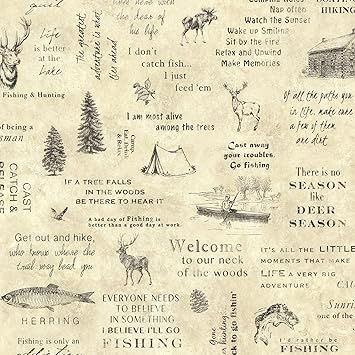 guil
the deer of
his life
Camping
Nap often
Watch the Sunset
Wake up Smiling
Sit by the Fire
Relax and Unwind
Make Memories
BOATING
HIKING
Life
is better
at the
Lake
The greatest
adventure is what
lies ahead
I don't
catch fish...
I just
feed 'em
Fishing & Hunting
Of all the paths you
in life, make sure
a few of them
are dirt.
I am most alive
among the trees
of being a
man
Camp,
Eat, Fish
& Relax
Cast away
your troubles.
Go fishing
CAST
CATCH &
RELEASE
If a tree falls
in the woods
be there to hear it
There is no
SEASON
like
DEER
SEASON
A bad day of Fishing is
better than a good day at work.
Get out and hike,
who knows where the
trail may lead you
Welcome
to our neck
of the woods
IT'S ALL THE LITTLE
MOMENTS THAT MAKE
LIFE A VERY BIG
ADVENTURE
HERRING
EVERYONE NEEDS
TO BELIEVE
IN SOMETHING
I BELIEVE I'LL GO
FISHING
Gone
fishing
back to go fishin'
Sunrise
one of the
I'd rather be
FISHING
Fishing is only an